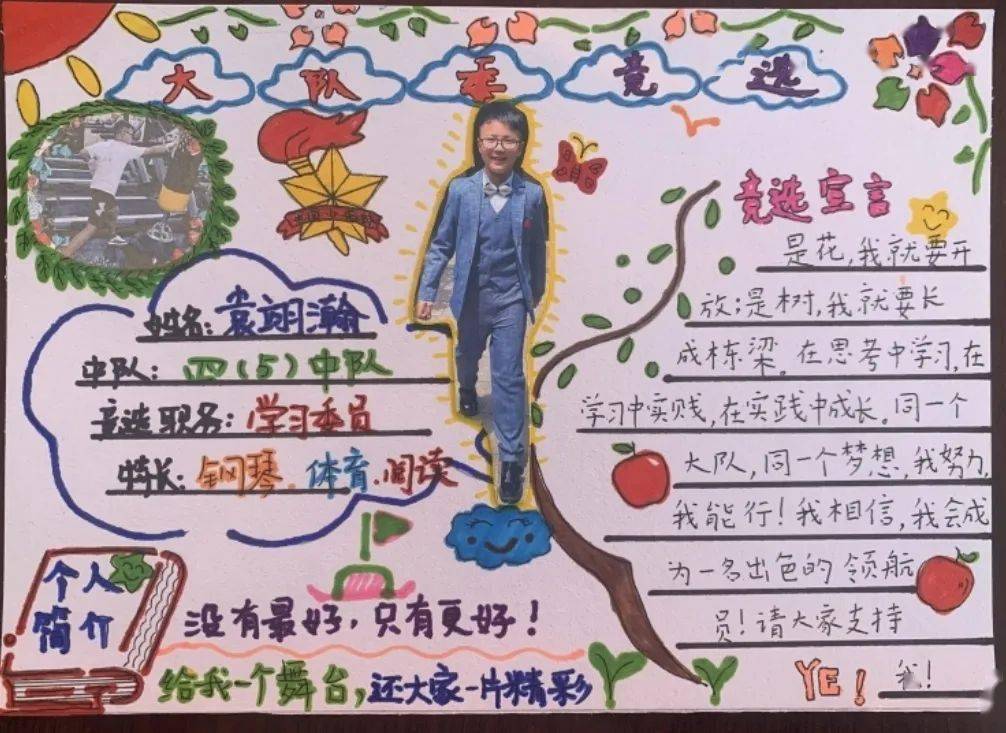 大队委竞选
姓名：袁翊瀚
中队：四（5）中队
竞选职务：学习委员
特长：钢琴、体育、阅读
个人
简介
没有最好，只有更好！
给我一个舞台，还大家一片精彩
竞选宣言
是花，我就要开
放；是树，我就要长
成栋梁。在思考中学习，在
学习中实践，在实践中成长。同一个
大队，同一个梦想，我努力，
我能行！我相信，我会成
为一名出色的领航
员！请大家支持
我！
YE！